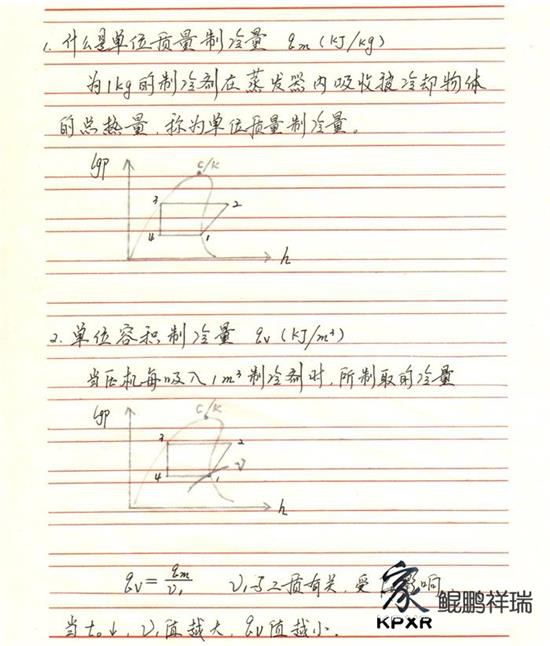 1. 什么是单位质量制冷量 qm (KJ/kg)
为1kg的制冷剂在蒸发器内吸收被冷却物体
的总热量,称为单位质量制冷量。
lgp
C/K
3
2
4
1
h
2. 单位容积制冷量 qv (KJ/m³)
当压机每吸入1m³制冷剂时,所制取的冷量
lgp
C/K
3
2
4
1
v
h
qv = qm/v₁ v₁与工质有关,受 影响
当to↓, v₁值越大, qv值越小.
家 鲲鹏祥瑞
KPXR